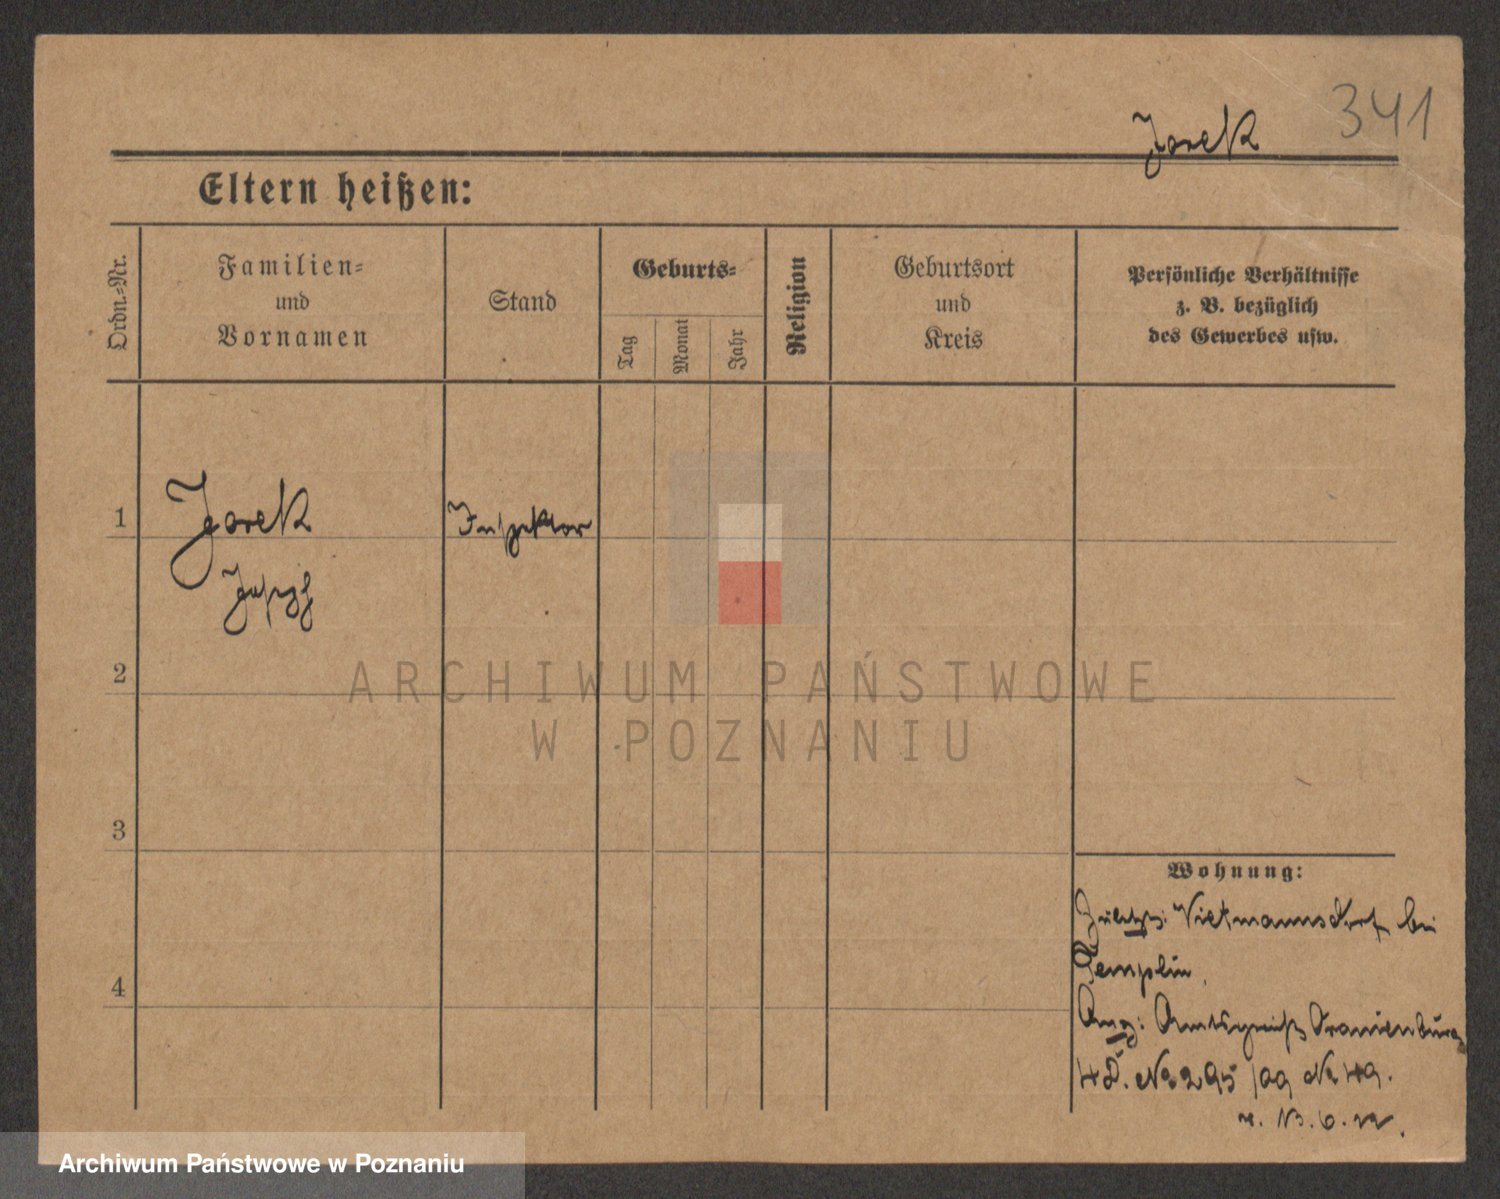 341
Jarek
Eltern heißen:
Ordn.-Nr.
Familien-
und
Vornamen
Stand
Geburts-
Tag
Monat
Jahr
Religion
Geburtsort
und
Kreis
Persönliche Verhältnisse
z. B. bezüglich
des Gewerbes usw.
1
Jarek
Inspektor
Joseph
2
ARCHIWUM PAŃSTWOWE
W POZNANIU
3
Wohnung:
Zuletzt: Vietmannsdorf bei
Templin
4
Ang: Amtsgericht Oranienburg
4 D. No 295/09 No 49.
v. 13. 6. 12.
Archiwum Państwowe w Poznaniu